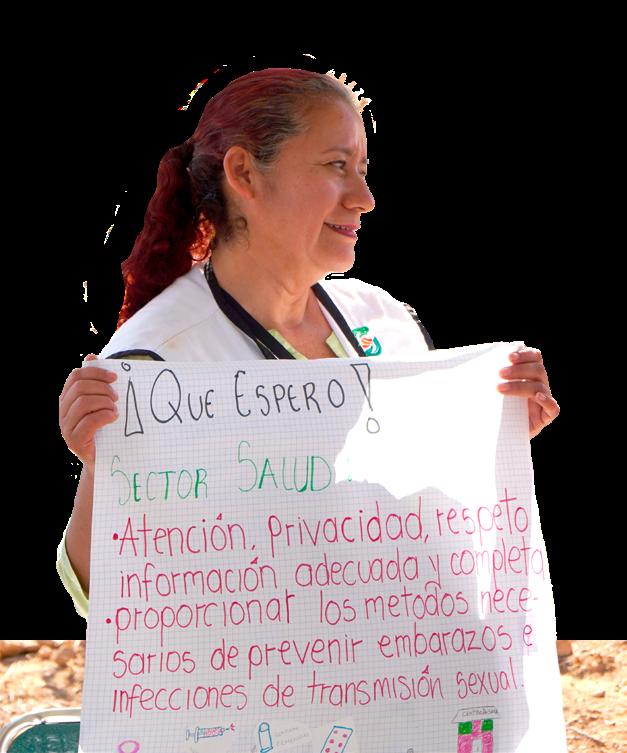 ¡QUE ESPERO!
SECTOR SALUD:
•Atención, Privacidad, respeto
información adecuada y completa
•proporcionar los metodos nece-
sarios de prevenir embarazos e
infecciones de transmisión sexual.